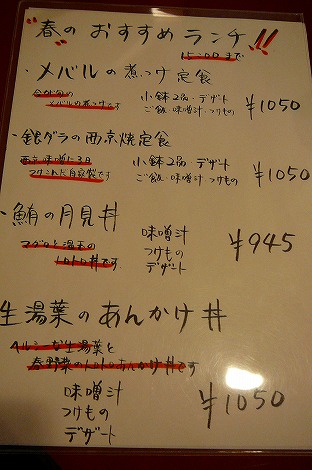 "春のおすすめランチ"!!
15:00まで
・メバルの煮つけ定食
今が旬の
メバルの煮つけです
小鉢2品・デザート
ご飯・味噌汁・つけもの
¥1050
・銀ダラの西京焼定食
西京味噌に3日
つけこんだ自家製です
小鉢2品・デザート
ご飯・味噌汁・つけもの
¥1050
・鮪の月見丼
マグロと温玉の
トロトロ丼です
味噌汁
つけもの
デザート
¥945
生湯葉のあんかけ丼
ヘルシーな生湯葉と
春野菜のトロトロあんかけ丼です
味噌汁
つけもの
デザート
¥1050